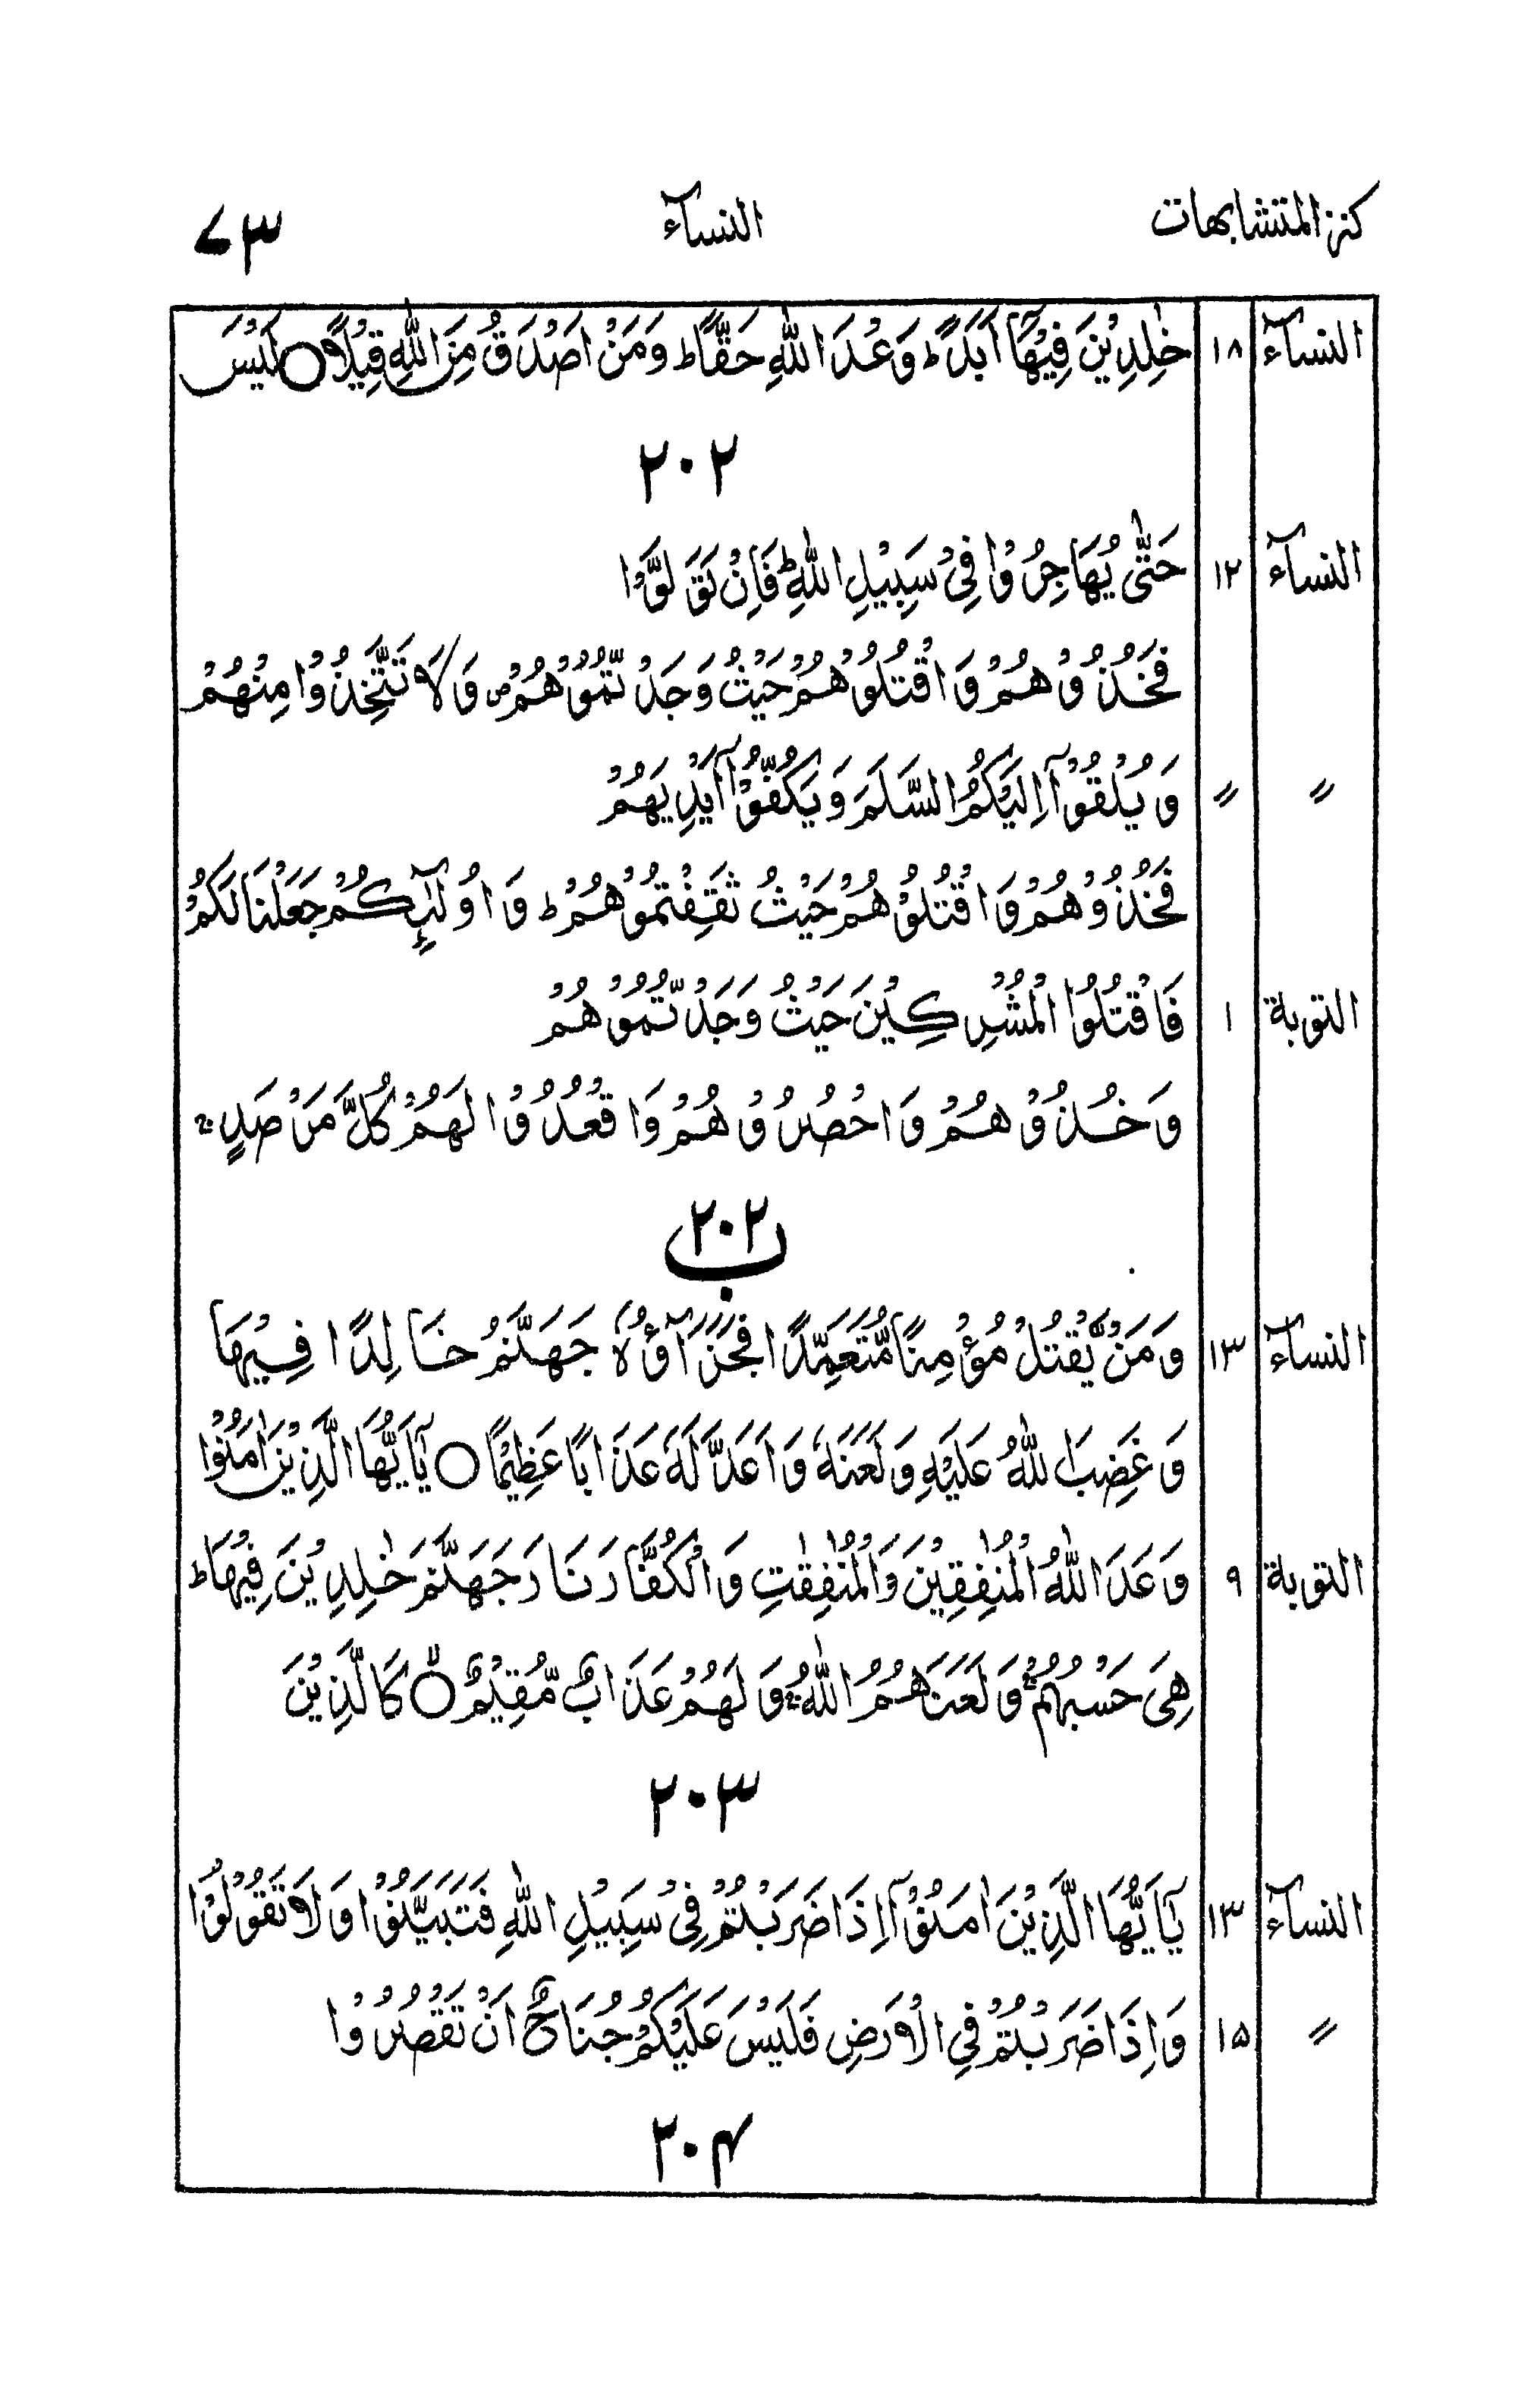 كنز المتشابهات النسآء ٧٣
النسآء ١٨ خٰلِدِيْنَ فِيْهَآ اَبَدًا ط وَعْدَ اللّٰهِ حَقًّا ط وَمَنْ اَصْدَقُ مِنَ اللّٰهِ قِيْلًا ○ لَيْسَ
٢٠٢
النسآء ١٢ حَتّٰى يُهَاجِرُوْا فِيْ سَبِيْلِ اللّٰهِ ط فَاِنْ تَوَلَّوْا
فَخُذُوْهُمْ وَاقْتُلُوْهُمْ حَيْثُ وَجَدْتُّمُوْهُمْ ص وَلَا تَتَّخِذُوْا مِنْهُمْ
〃 〃 وَيُلْقُوْٓا اِلَيْكُمُ السَّلَمَ وَيَكُفُّوْٓا اَيْدِيَهُمْ
فَخُذُوْهُمْ وَاقْتُلُوْهُمْ حَيْثُ ثَقِفْتُمُوْهُمْ ط وَاُولٰٓئِكُمْ جَعَلْنَا لَكُمْ
التوبة ١ فَاقْتُلُوا الْمُشْرِكِيْنَ حَيْثُ وَجَدْتُّمُوْهُمْ
وَخُذُوْهُمْ وَاحْصُرُوْهُمْ وَاقْعُدُوْا لَهُمْ كُلَّ مَرْصَدٍ ج
٢٠٢ ب
النسآء ١٣ وَمَنْ يَّقْتُلْ مُؤْمِنًا مُّتَعَمِّدًا فَجَزَآؤُهٗ جَهَنَّمُ خَالِدًا فِيْهَا
وَغَضِبَ اللّٰهُ عَلَيْهِ وَلَعَنَهٗ وَاَعَدَّ لَهٗ عَذَابًا عَظِيْمًا ○ يٰٓاَيُّهَا الَّذِيْنَ اٰمَنُوْا
التوبة ٩ وَعَدَ اللّٰهُ الْمُنٰفِقِيْنَ وَالْمُنٰفِقٰتِ وَالْكُفَّارَ نَارَ جَهَنَّمَ خٰلِدِيْنَ فِيْهَا ط
هِيَ حَسْبُهُمْ ج وَلَعَنَهُمُ اللّٰهُ ج وَلَهُمْ عَذَابٌ مُّقِيْمٌ ○ كَالَّذِيْنَ
٢٠٣
النسآء ١٣ يٰٓاَيُّهَا الَّذِيْنَ اٰمَنُوْٓا اِذَا ضَرَبْتُمْ فِيْ سَبِيْلِ اللّٰهِ فَتَبَيَّنُوْا وَلَا تَقُوْلُوْا
〃 ١٥ وَاِذَا ضَرَبْتُمْ فِي الْاَرْضِ فَلَيْسَ عَلَيْكُمْ جُنَاحٌ اَنْ تَقْصُرُوْا
٢٠۴